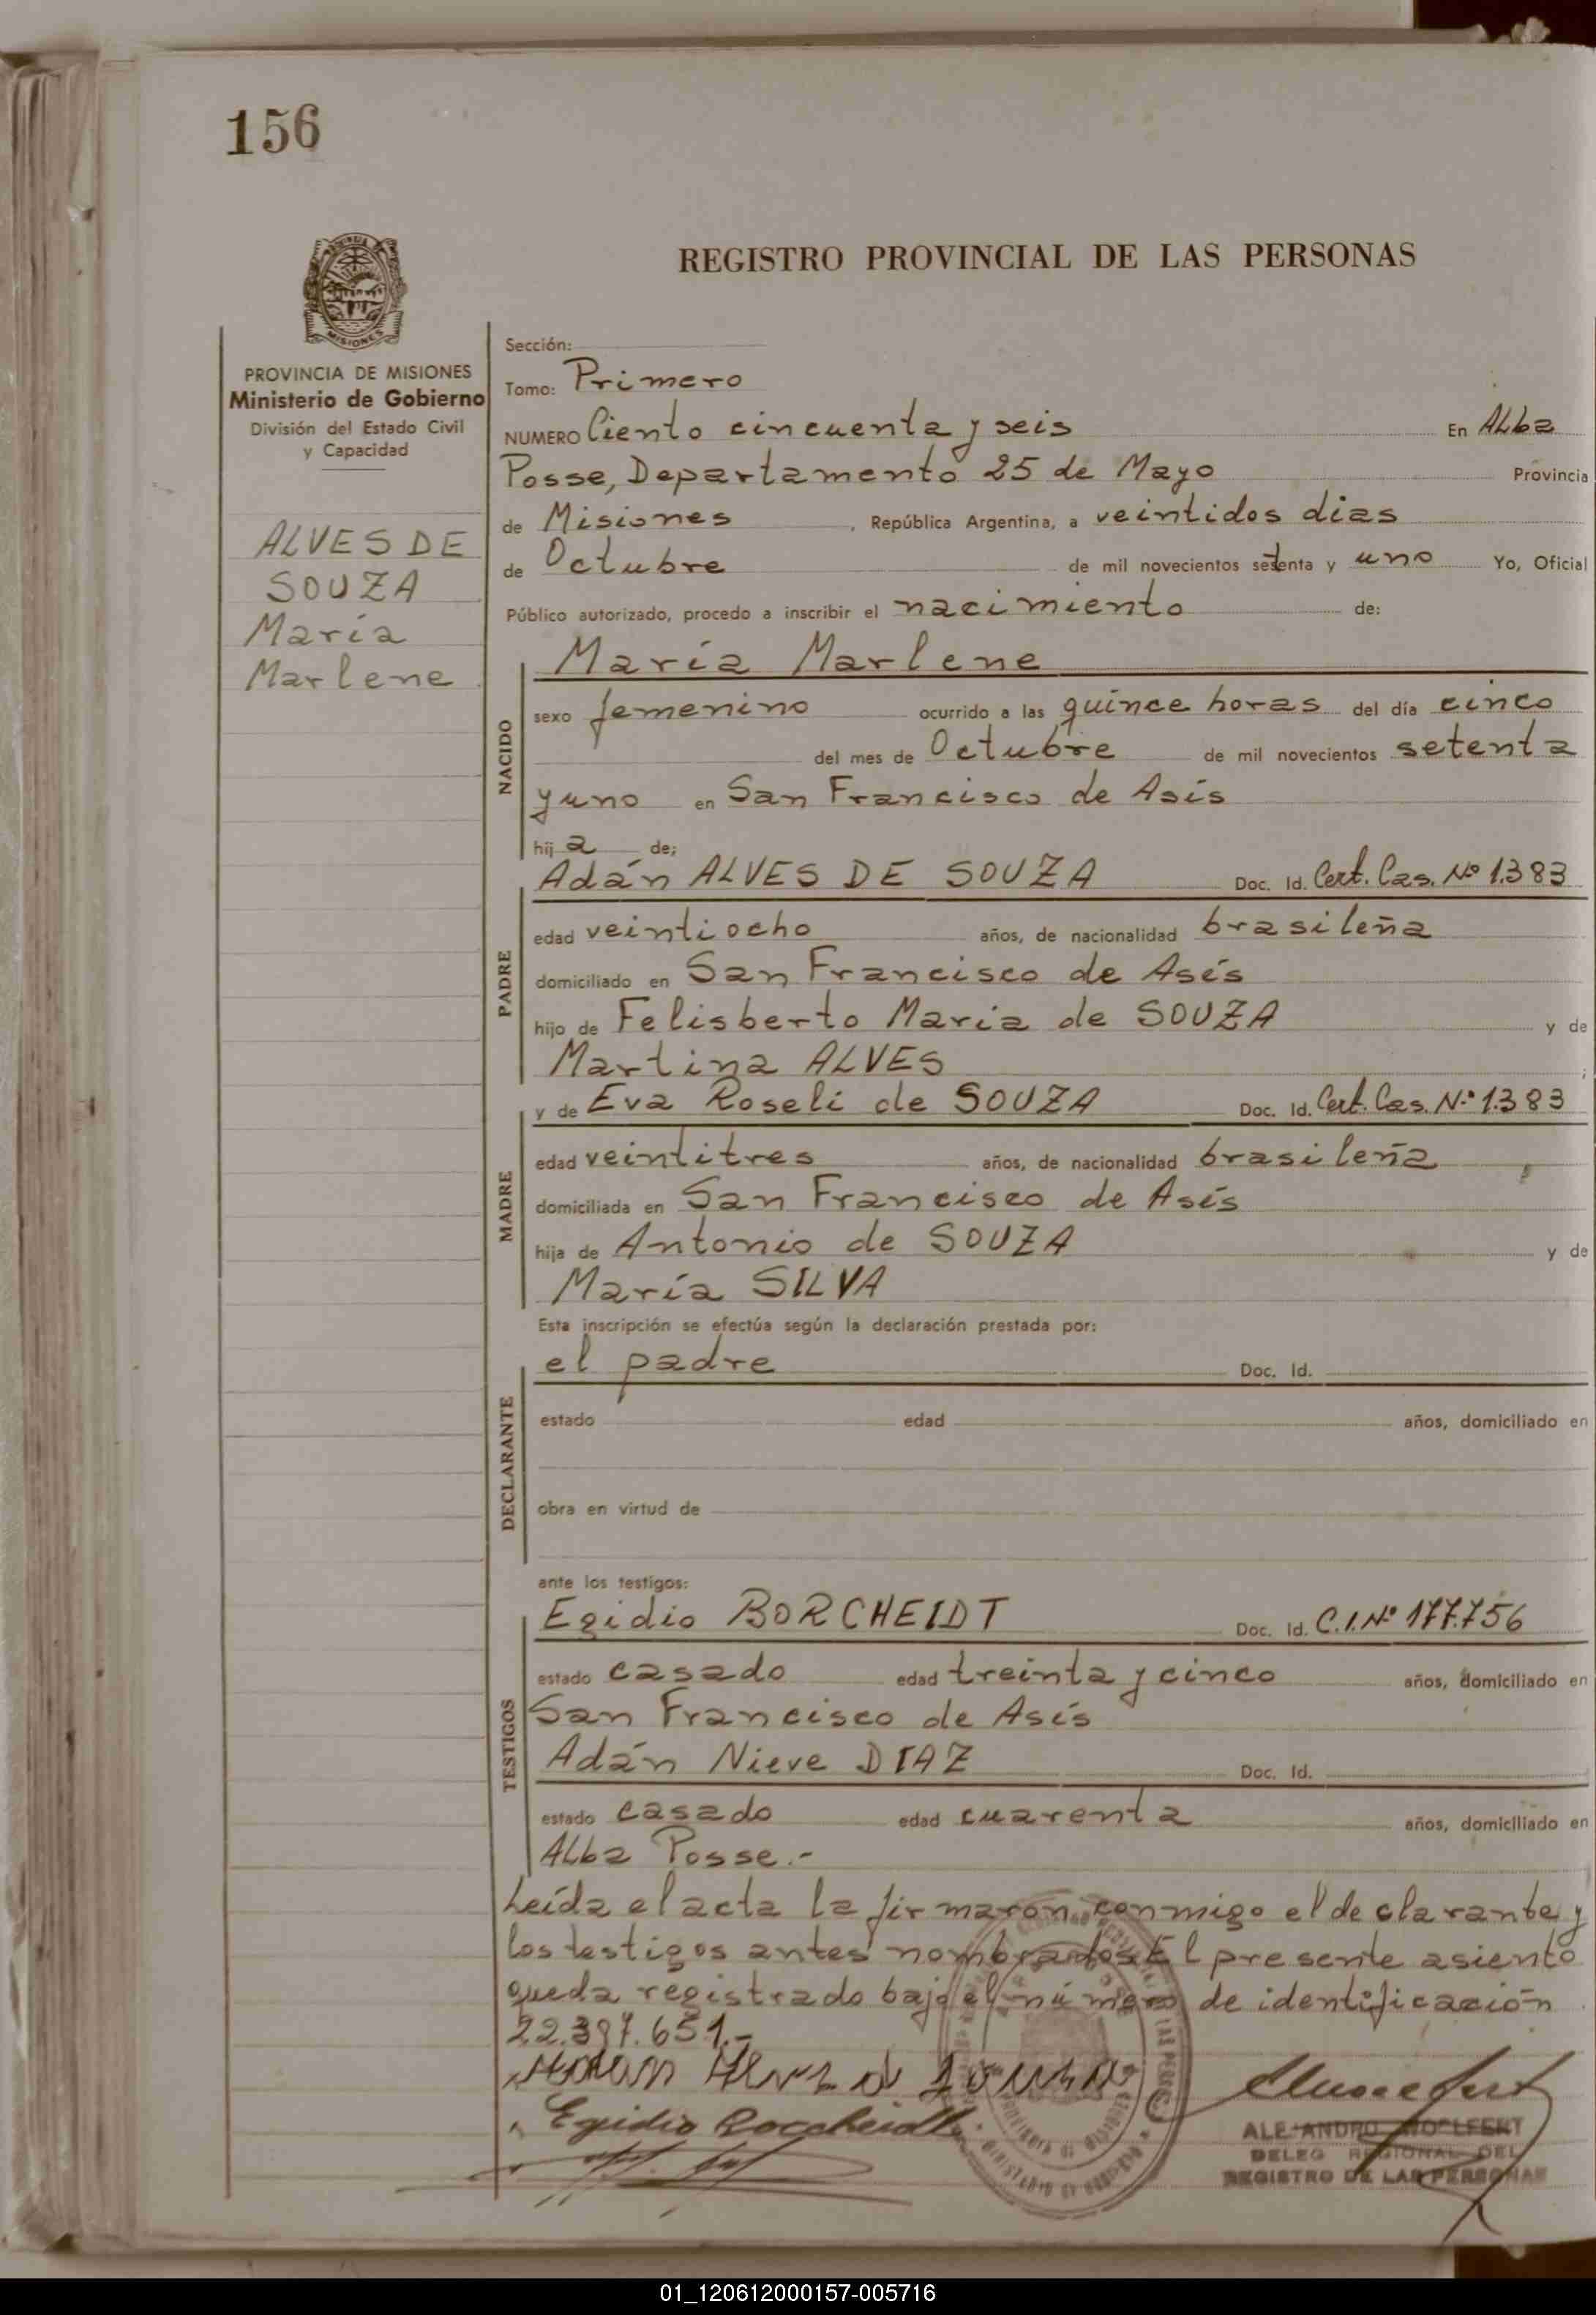 156
REGISTRO PROVINCIAL DE LAS PERSONAS
MISIONES
PROVINCIA DE MISIONES
Ministerio de Gobierno
División del Estado Civil
y Capacidad
ALVES DE
SOUZA
María
Marlene
Sección:
Tomo: Primero
NUMERO Ciento cincuenta y seis En Alba
Posse, Departamento 25 de Mayo Provincia
de Misiones, República Argentina, a veintidos dias
de Octubre de mil novecientos setenta y uno Yo, Oficial
Público autorizado, procedo a inscribir el nacimiento de:
María Marlene
NACIDO
sexo femenino ocurrido a las quince horas del día cinco
del mes de Octubre de mil novecientos setenta
y uno en San Francisco de Asís
hij a de;
Adán ALVES DE SOUZA Doc. Id. Cert. Cas. Nº 1.383
PADRE
edad veintiocho años, de nacionalidad brasileña
domiciliado en San Francisco de Asís
hijo de Felisberto María de SOUZA y de
Martina ALVES ;
y de Eva Roseli de SOUZA Doc. Id. Cert. Cas. Nº 1.383
MADRE
edad veintitres años, de nacionalidad brasileña
domiciliada en San Francisco de Asís
hija de Antonio de SOUZA y de
María SILVA
Esta inscripción se efectúa según la declaración prestada por:
el padre Doc. Id.
DECLARANTE
estado edad años, domiciliado en
obra en virtud de
ante los testigos:
Egidio BORCHEIDT Doc. Id. C.I.Nº 177.756
TESTIGOS
estado casado edad treinta y cinco años, domiciliado en
San Francisco de Asís
Adán Nieve DIAZ Doc. Id.
estado casado edad cuarenta años, domiciliado en
Alba Posse.-
Leída el acta la firmaron conmigo el declarante y
los testigos antes nombrados El presente asiento
queda registrado bajo el número de identificación
22.397.651.-
Adan Alves de Souza
Egidio Borcheidt
DELEG REGIONAL DEL
REGISTRO DE LAS PERSONAS
01_120612000157-005716